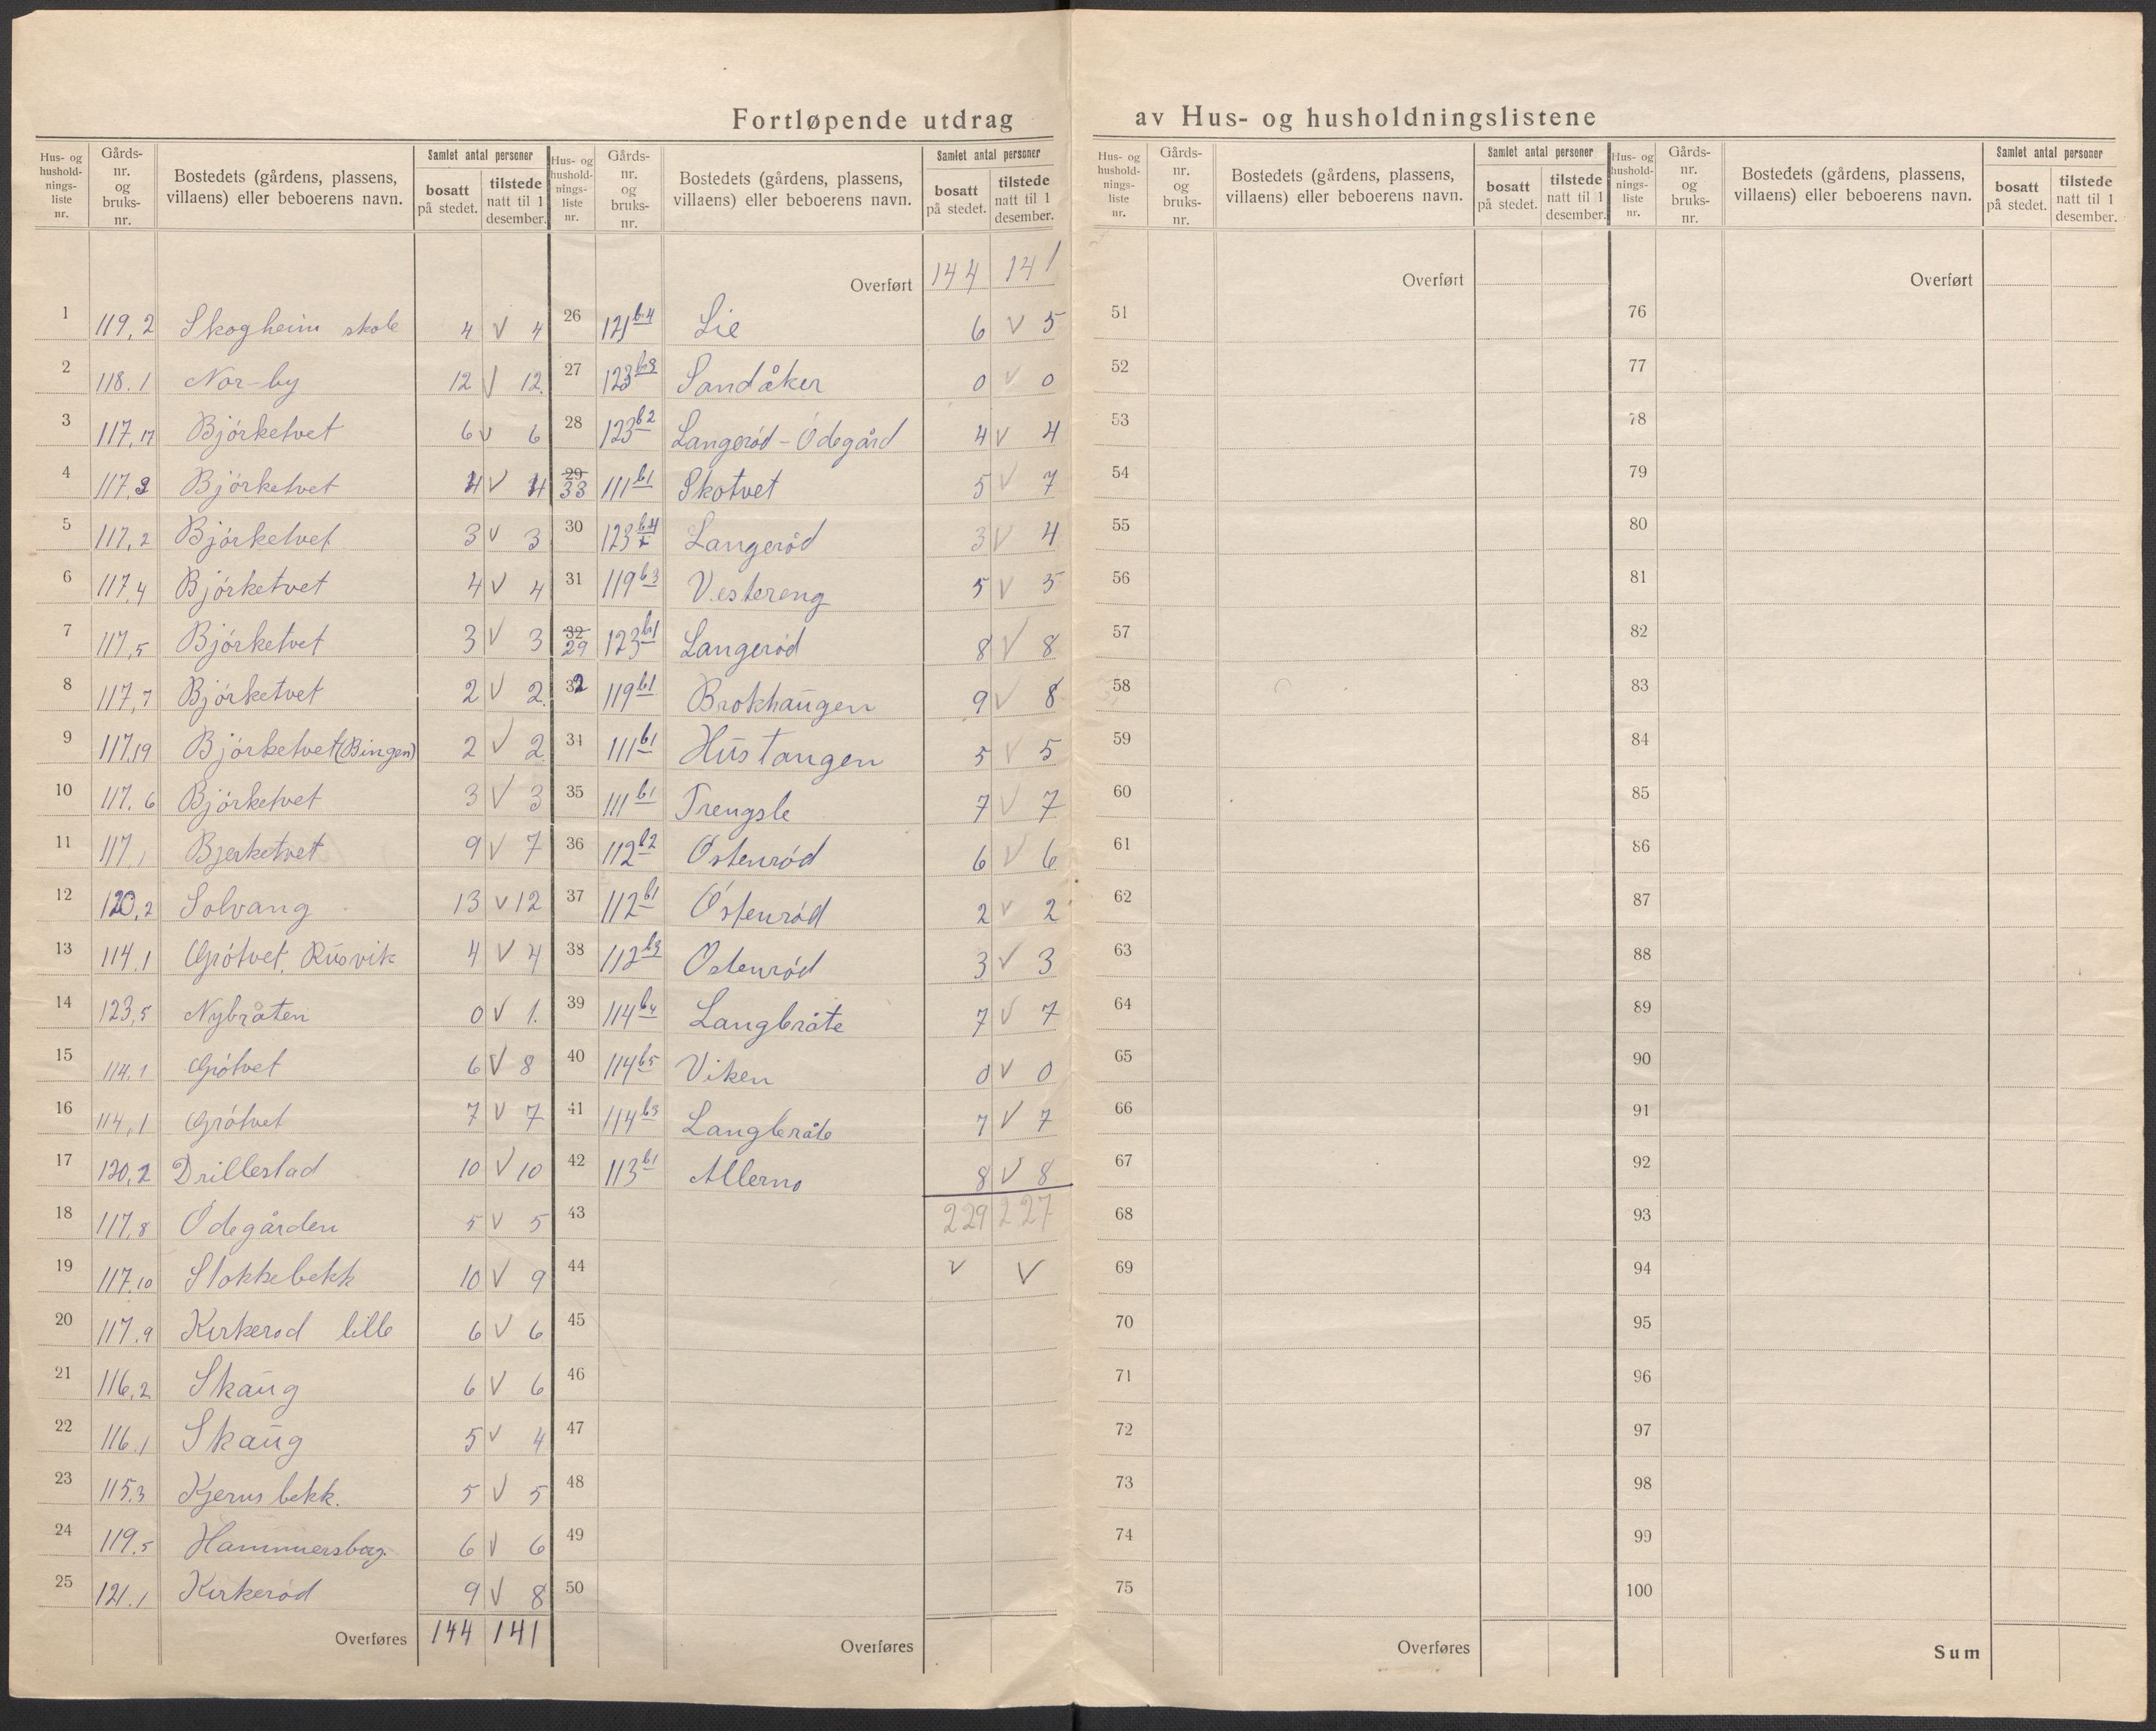 Fortløpende utdrag av Hus- og husholdningslistene
Hus- og hushold-nings-liste nr. Gårds-nr. og bruks-nr. Bostedets (gårdens, plassens, villaens) eller beboerens navn. Samlet antal personer bosatt på stedet. tilstede natt til 1 desember.
1 119,2 Skogheim skole 4 V 4
2 118.1 Nor-by 12 V 12.
3 117,17 Bjórketvet 6 V 6
4 117,3 Bjórketvet 4 V 4
5 117,2 Bjórketvet 3 V 3
6 117,4 Bjórketvet 4 V 4
7 117,5 Bjórketvet 3 V 3
8 117,7 Bjórketvet 2 V 2.
9 117,19 Bjórketvet (Bingen) 2 V 2.
10 117.6 Bjórketvet 3 V 3
11 117,1 Bjerketvet 9 V 7
12 120,2 Solvang 13 V 12
13 114.1 Grótvet, Rusvik 4 V 4
14 123,5 Nybråten 0 V 1.
15 114.1 Grótvet 6 V 8
16 114,1 Grótvet 7 V 7
17 120,2 Drillestad 10 V 10
18 117,8 Ódegården 5 V 5
19 117.10 Stokkebekk 10 V 9
20 117.9 Kirkerod lille 6 V 6
21 116,2 Skaug 6 V 6
22 116.1 Skaug 5 V 4
23 115.3 Kjerns bekk. 5 V 5
24 119.5 Hammersborg. 6 V 6
25 121.1 Kirkeród 9 V 8
Overføres 144 141
Hus- og hushold-nings-liste nr. Gårds-nr. og bruks-nr. Bostedets (gårdens, plassens, villaens) eller beboerens navn. Samlet antal personer bosatt på stedet. tilstede natt til 1 desember.
Overført 144 141
26 121 b.4 Lie 6 V 5
27 123 b.3 Sandåker 0 V 0
28 123 b2 Langeród-Ódegård 4 V 4
29 33 111 b1 Skotvet 5 V 7
30 123 b.4 Langeród 3 V 4
31 119 b3 Vestereng 5 V 5
32 29 123 b.1 Langeród 8 V 8
32 119 b1 Brokhaugen 9 V 8
34 111 b1 Hustangen 5 V 5
35 111 b1 Trengsle 7 V 7
36 112 b2 Óstenród 6 V 6
37 112 b1 Óstenród 2 V 2
38 112 b3 Ostenród 3 V 3
39 114 b4 Langbråte 7 V 7
40 114 b5 Viken 0 V 0
41 114 b3 Langbråte 7 V 7
42 113 b1 Allerno 8 V 8
43 229 227
44 V V
45
46
47
48
49
50
Overføres
Hus- og hushold-nings-liste nr. Gårds-nr. og bruks-nr. Bostedets (gårdens, plassens, villaens) eller beboerens navn. Samlet antal personer bosatt på stedet. tilstede natt til 1 desember.
Overført
51
52
53
54
55
56
57
58
59
60
61
62
63
64
65
66
67
68
69
70
71
72
73
74
75
Overføres
Hus- og hushold-nings-liste nr. Gårds-nr. og bruks-nr. Bostedets (gårdens, plassens, villaens) eller beboerens navn. Samlet antal personer bosatt på stedet. tilstede natt til 1 desember.
Overført
76
77
78
79
80
81
82
83
84
85
86
87
88
89
90
91
92
93
94
95
96
97
98
99
100
Sum